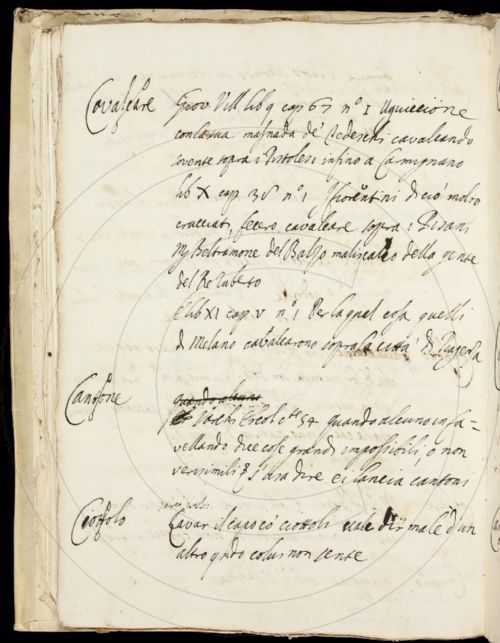 Cavalcare Giov Vill lib 9 cap 67 n° 1 Uguiccione
con la sua masnada de Tedeschi cavalcando
sovente sopra i Pistolesi infino a Carmignano
lib X cap 38 n° 1 I fiorentini di ciò molto
crucciati, fecero cavalcare sopra i Pisani
M Beltramone del Balzo maliscalco della gente
del Re Ruberto
E lib XI cap V n° 1 Per la qual cosa quelli
di Melano cavalcarono sopra la città di Piagenza
Cantone quando alcuno
Ercol 54 quando alcuno in fa=
vellando dice cose grandi impossibili, o non
verisimili s'usa dire ei lancia cantoni
Ciottolo Lavar il capo co ciottoli vale dir male d'un
altro qndo colui non sente